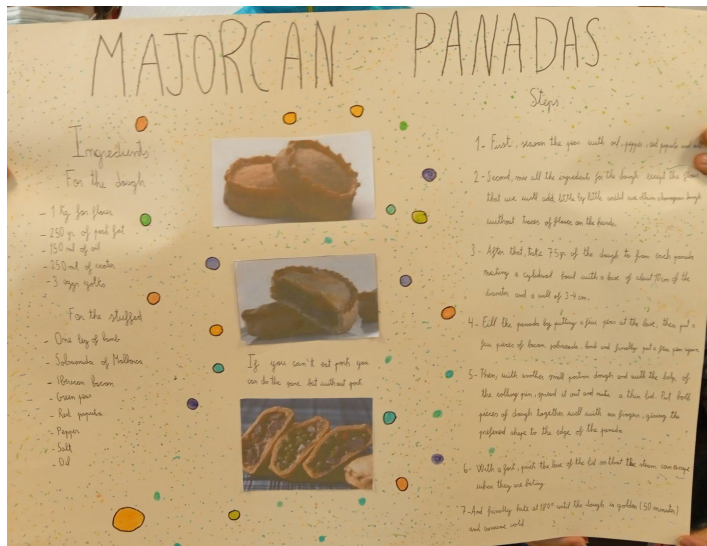 MAJORCAN PANADAS
Ingredients
For the dough
- 1 Kg for flour
- 250 gr. of pork fat
- 150 ml of oil
- 250 ml of water
- 3 eggs yolks
For the stuffed
- One leg of lamb
- Sobrasada of Mallorca
- Iberian bacon
- Green peas
- Red paprika
- Pepper
- Salt
- Oil
If you can't eat pork you
can do the same but without pork
Steps
1- First, season the peas with oil, pepper, red paprika and
2- Second, mix all the ingredients for the dough except the flour
that we will add little by little until we obtain dough
without traces of flour on the hands.
3- After that, take 75gr. of the dough to form each panada
making a bowl with a base of about 10 cm of the
diameter and a wall of 3-4 cm.
4- Fill the panada by putting a few peas at the base, then put a
few pieces of bacon, sobrasada, lamb and finally put a few peas again.
5- Then, with another small portion dough and with the help of
the rolling pin, spread it out and make a thin lid. Put both
pieces of dough together well with our fingers, giving the
preferred shape to the edge of the panada.
6- With a fork, prick the base of the lid so that the steam can escape
when they are baking.
7- And finally bake at 180º until the dough is golden (50 minutes)
and consume cold.